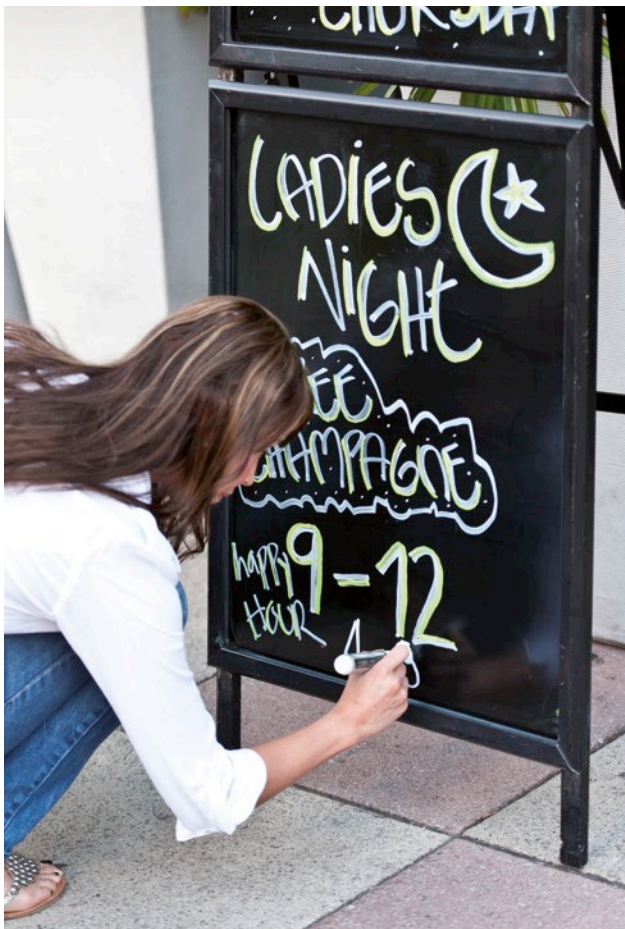 THURSDAY
LADiES
NiGHT
FREE
CHAMPAGNE
happy 9-12
HOUR